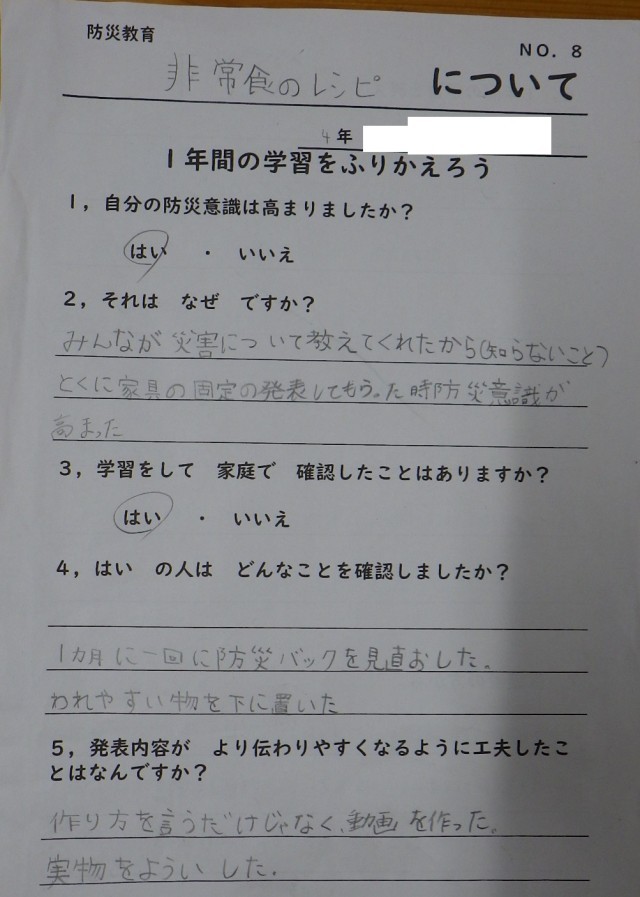 防災教育
NO. 8
非常食のレシピ について
4年
1年間の学習をふりかえろう
1, 自分の防災意識は高まりましたか?
はい ・ いいえ
2, それは なぜ ですか?
みんなが災害について教えてくれたから(知らないこと)
とくに家具の固定の発表してもらった時防災意識が
高まった
3, 学習をして 家庭で 確認したことはありますか?
はい ・ いいえ
4, はい の人は どんなことを確認しましたか?
1カ月に一回に防災バックを見直おした。
われやすい物を下に置いた
5, 発表内容が より伝わりやすくなるように工夫したこ
とはなんですか?
作り方を言うだけじゃなく、動画を作った。
実物をようい した.